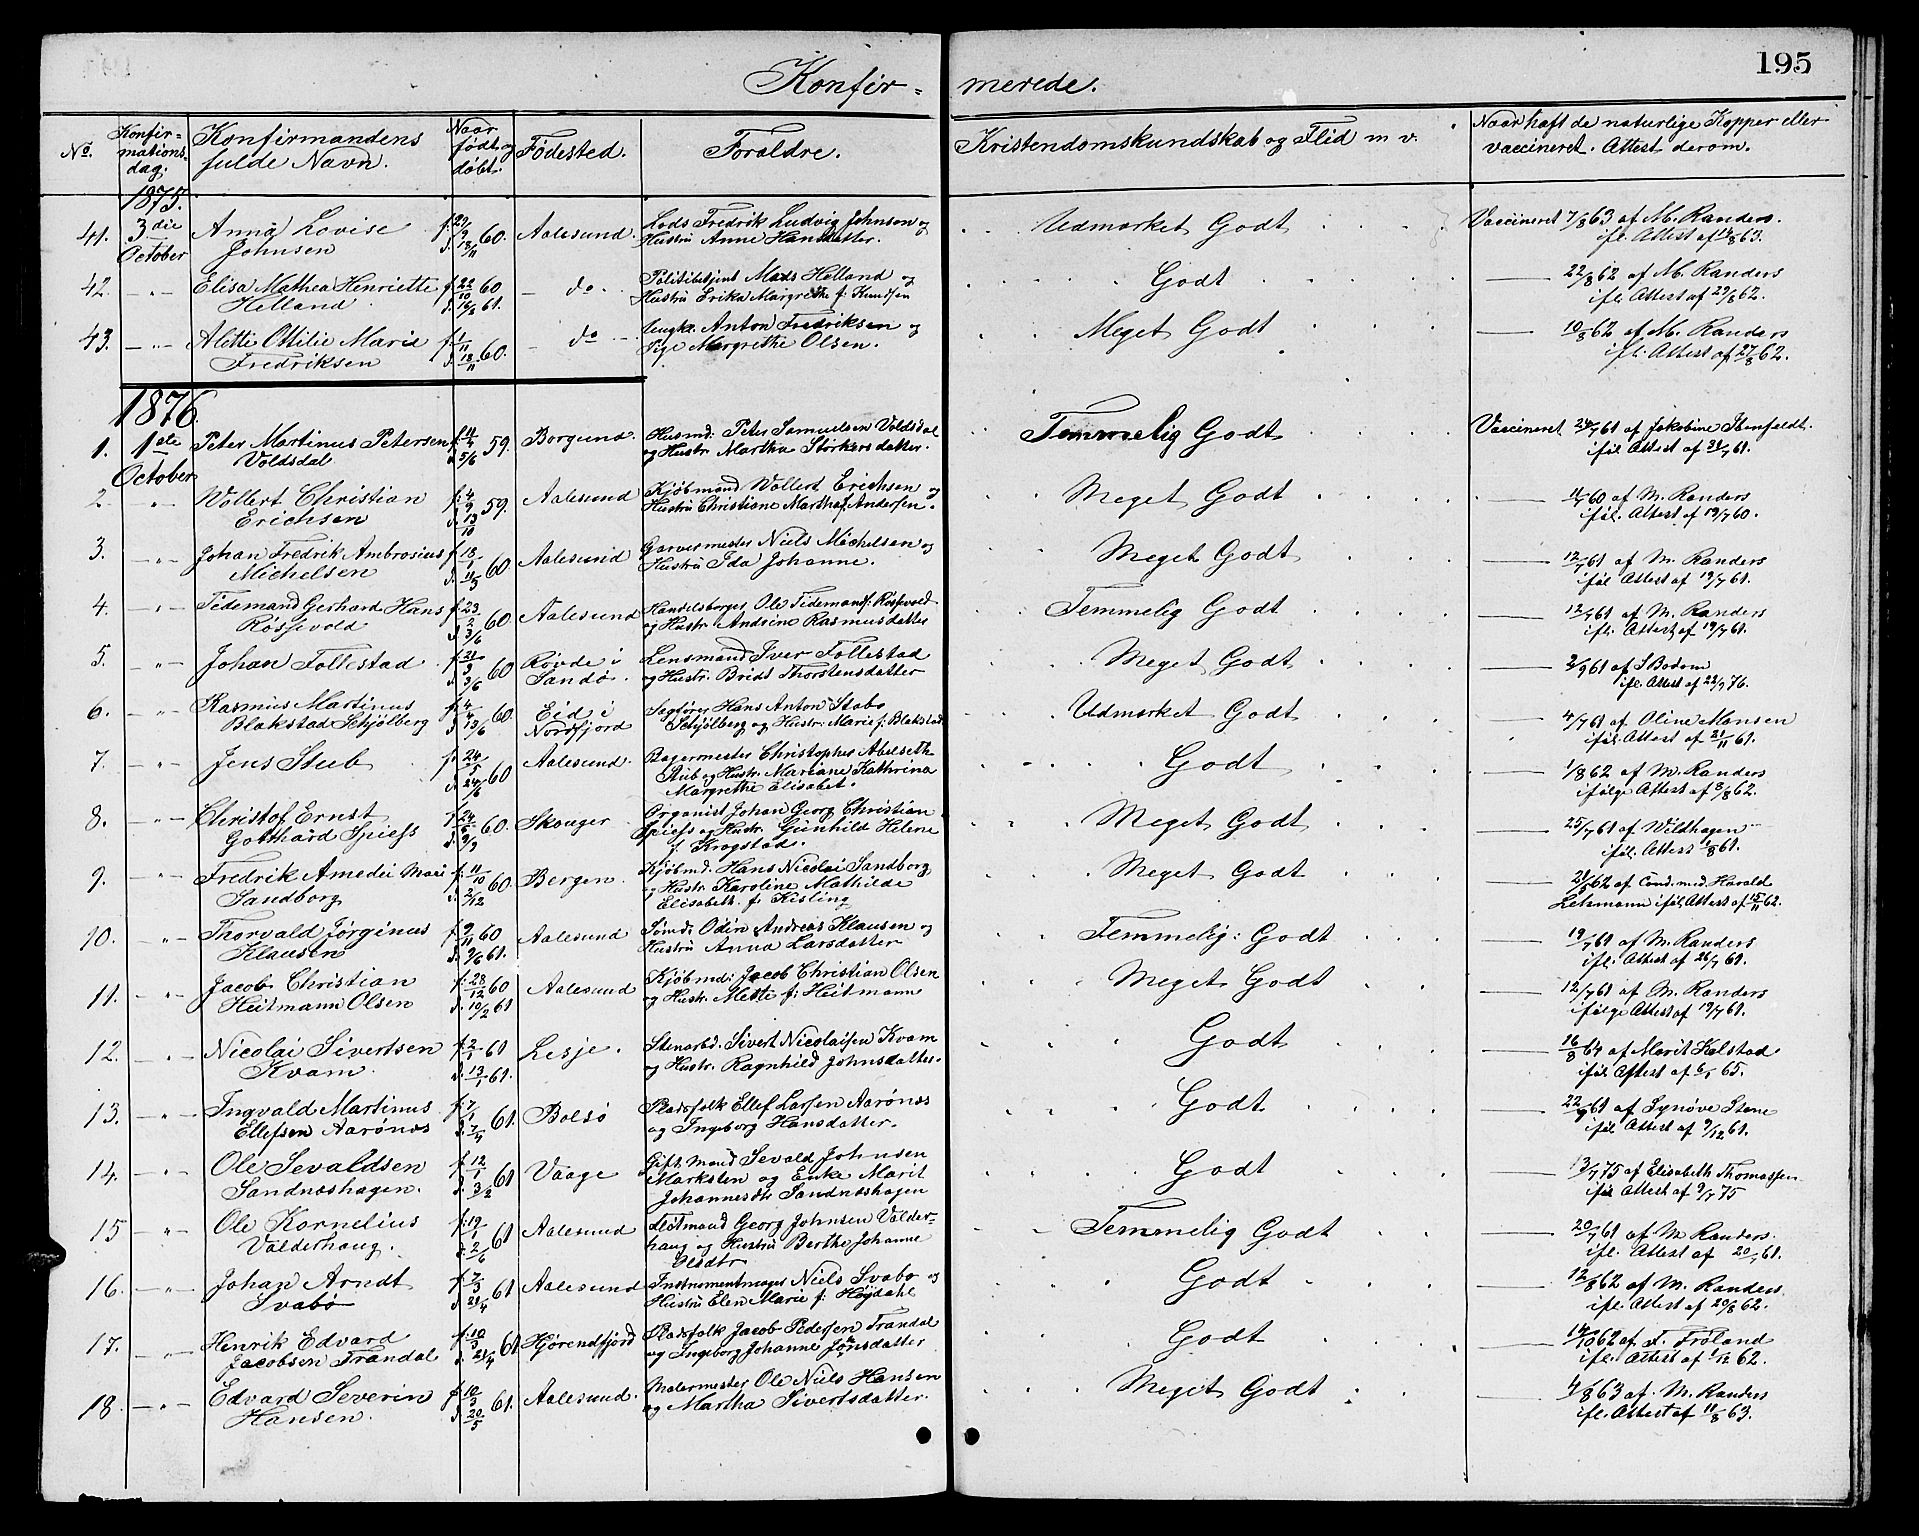 Konfir- merede. 195
No. Konfir-mations-dag. Konfirmandens fulde Navn. Naar født og døbt. Fødested. Forældre. Kristendomskundskab og Flid m v. Naar haft de naturlige Kopper eller vaccineret. Attest derom.
1875.
41. 3die October Anna Lovise Johnsen f. 29/9 d. 18/11 60. Aalesund. Lods Fredrik Ludvig Johnsen og Hustru Anne Hansdatter. Udmærket Godt Vaccineret 7/8 63 af M. Randers. ifl. Attest af 14/8 63.
42. -"- Elisa Mathea Henriette Helland f. 22/10 60 d. 16/3 61. do. Politibetjent Mads Helland og Hustru Erika Margrethe f: Knudsen Godt 22/8 62 af M. Randers ifl. Attest af 29/8 62.
43. -"- Alette Ottilie Marie Fredriksen f. 1/11 d. 18/11 60. do Ungkl. Anton Fredriksen og Pige Margrethe Olsen. Meget Godt 19/8 62 af M. Randers ifl. Attest af 27/8 62.
1876.
1. 1ste October Peter Martinus Petersen Voldsdal f. 11/4 d. 5/6 59. Borgund. Husmd. Peter Samuelsen Voldsdal og Hustr. Martha Storkersdatter. Temmelig Godt Vaccineret 24/7 61 af Jakobine Stenfeldt. iføl. Attest af 31/7 61.
2. -"- Vollert Christian Erichsen f. 4/9 d. 13/10 59. Aalesund Kjøbmand Vollert Erichsen og Hustru Christiane Martha f. Andersen. Meget Godt 11/7 60 af M. Randers iføl. Attest af 19/7 60.
3. -"- Johan Fredrik Ambrosius Michelsen f. 18/1 d. 11/3 60 Aalesund Garvermester Niels Michelsen og Hustru Ida Johanne. Meget Godt 12/7 61 af M. Randers iføl Attest af 19/7 61.
4. -"- Tidemand Gerhard Hans Røssevold f. 23/2 d. 3/6 60 Aalesund Handelsborger Ole Tidemand f: Røssevold og Hustr. Andsine Rasmusdatter Temmelig Godt 12/7 61 af M. Randers ifl. Attest af 19/7 61.
5. -"- Johan Follestad f. 21/3 d. 3/6 60 Røvde i Sandø. Lensmand Iver Follestad og Hustr. Bridt Thorstensdatter Meget Godt 2/9 61 af S Bodom ifl. Attest af 22/9 76.
6. -"- Rasmus Martinus Blakstad Schjølberg f. 4/4 d. 13/6 60. Eid i Nordfjord Sagfører Hans Anton Stabo Schjølberg og Hustr. Marie f: Blakstad Udmærket Godt 4/7 61 af Oline Monsen iføl. Attest af 21/11 61.
7. -"- Jens Stub f. 24/5 d. 24/6 60 Aalesund. Bagermester Christopher Abelseth Stub og Hustr. Mariane Kathrina Margrethe Elisabet. Godt 1/8 62 af M. Randers ifølge Attest af 8/8 62.
8. -"- Christof Ernst Gotthard Spiess f. 24/6 d. 9/9 60. Skouger Organist Johan Georg Christian Spiess og Hustr. Gunhild Helene f. Krogstad. Meget Godt 25/7 61 af Wildhagen iføl. Attest 1/8 61.
9. -"- Fredrik Amedei Mari Sandborg f. 11/10 d. 2/12 60. Bergen. Kjøbmd. Hans Nicolai Sandborg og Hustr. Karoline Mathilde Elisabeth f. Kisling Meget Godt 21/5 62 af Cand. med. Harald Lehmann iføl. Attest af 15/11 62.
10. -"- Thorvald Jørginus Klausen f. 9/11 60 d. 9/6 61. Aalesund Sømd. Odin Andreas Klausen og Hustru Anna Larsdatter Temmelig: Godt 19/7 61 af M. Randers ifl. Attest af 26/7 61.
11. -"- Jacob Christian Heitmann Olsen f. 28/12 60 d. 10/2 61 Aalesund Kjøbmd: Jacob Christian Olsen og Hustr. Mette f: Heitmann Meget Godt 12/7 61 af M. Randers ifølge Attest af 19/7 61.
12. -"- Nicolai Sivertsen Kvam f. 2/1 61 d. 13/1 61. Lesje. Stenarbd. Sivert Nicolaisen Kvam og Hustr. Ragnhild Johnsdatter. Godt 16/8 64 af Marit Kolstad iføl. Attest af 6/1 65.
13. -"- Ingvald Martinus Ellefsen Aarønæs f. 7/1 d. 7/4 61. Bolsø Pladsfolk Ellef Larsen Aarønæs og Ingeborg Hansdatter. Godt 22/9 61 af Synøve Stene iføl. Attest af 9/12 61.
14. -"- Ole Sevaldsen Sandnæshagen. f. 12/1 d. 3/2 61 Vaage Gift Mand Sevald Johnsen Marksten og Enke Marit Johannesdtr Sandnæshagen Godt 13/7 75 af Elisabeth Thomassen iføl Attest af 9/7 75
15 -"- Ole Kornelius Valderhaug. f. 19/1 d. 2/6 61 Aalesund Flotmand Georg Johnsen Valder-haug og Hustru Berthe Johanne Olsdtr Temmelig Godt 20/7 61 af M Randers. ifl. Attest af 20/7 61.
16. -"- Johan Arndt Svabø f. 7/3 d. 21/4 61 Aalesund Instrumentmager Niels Svabo og Hustru Elen Marie f. Høydahl Godt 12/8 62 af M. Randers ifl. Attest af 20/8 62.
17. -"- Henrik Edvard Jacobsen Trandal f. 10/3 d. 21/4 61 Hjørendfjord Pladsfolk Jacob Pedersen Trandal og Ingeborg Johanne Jonsdatter Godt 14/10 62 af. F. Frøland ifl. Attest af 1/12 62.
18. -"- Edvard Severin Hansen. f. 10/3 d. 20/5 61. Aalesund. Malermester Ole Niels Hansen og Martha Sivertsdatter. Meget Godt 4/8 63 af. M. Randers ifl. Attest af 11/8 63.